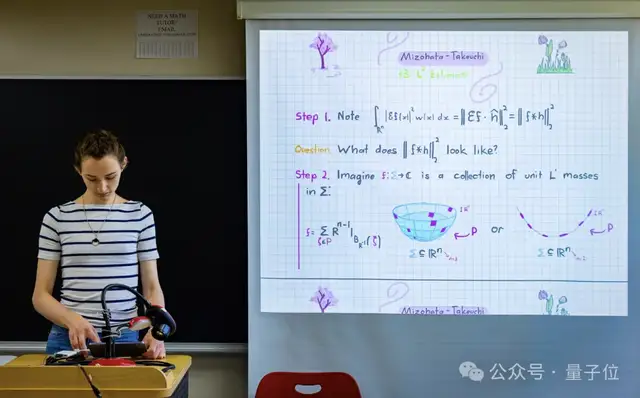 NEED A MATH
TUTOR?
EMAIL
Mizohata-Takeuchi
Step 1. Note ∫_{ℝⁿ} |Ef(x)|² w(x) dx = ‖Ef · ĥ‖₂² = ‖f*h‖₂²
Question. What does ‖f*h‖₂² look like?
Step 2. Imagine f: Σ→ℂ is a collection of unit L¹ masses
in Σ.
f = Σ_{ξ∈P} R^{n-1} 1_{B_{R⁻¹}(ξ)}
P or P
Σ ⊆ ℝⁿ Σ ⊆ ℝⁿ
Mizohata-Takeuchi
公众号 · 量子位